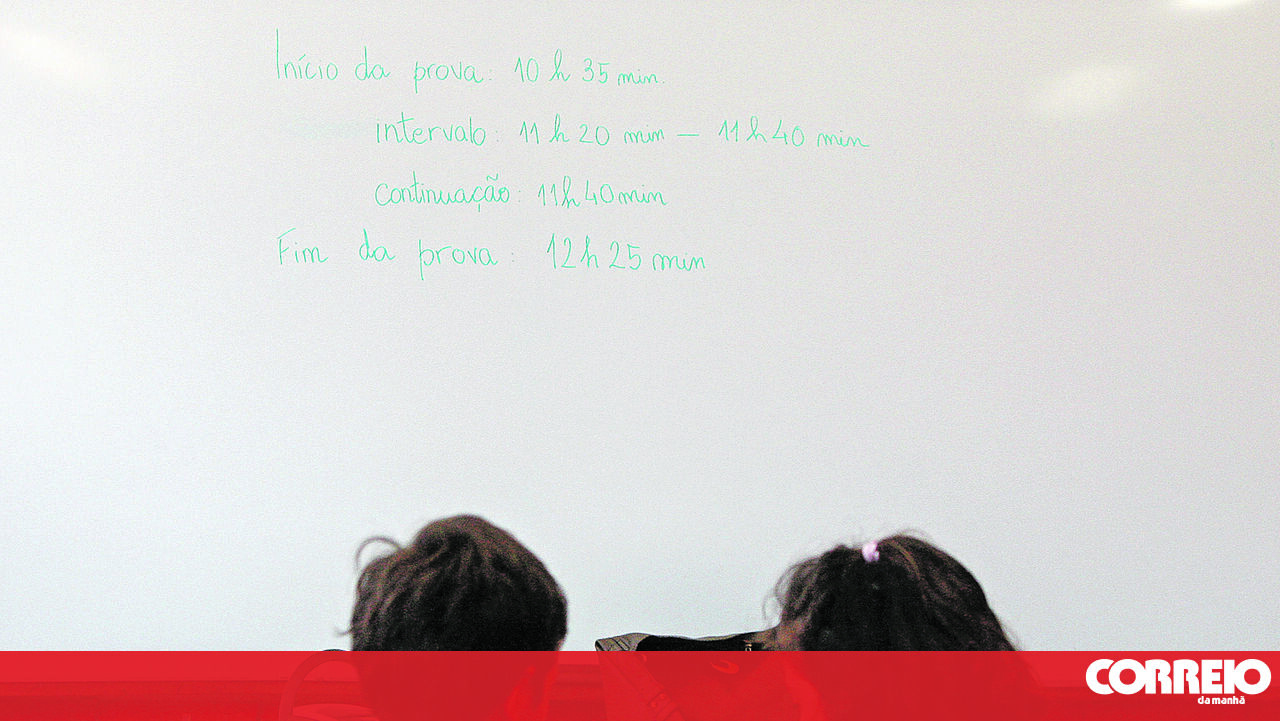 Início da prova: 10 h 35 min.
intervalo: 11 h 20 min — 11 h 40 min
continuação: 11h 40 min
Fim da prova: 12 h 25 min
CORREIO
da manhã